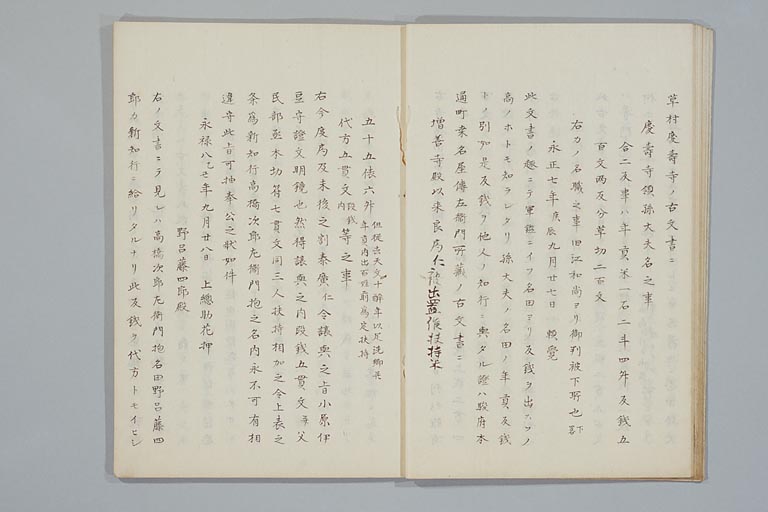 草村慶壽寺ノ古文書ニ
慶壽寺領孫大夫名之事
合二反事八年貢米一石二斗四升反銭五
百文両反分草切二百文
右カノ名職之事旧江和尚ヨリ御判被下所也
永正七年庚辰九月廿七日 頼覺
此文書ノ趣ニテ軍鑑ニイフ名田ヨリ反銭ヲ出スフノ
高ノホトモ知ラレタリ孫大夫ノ名田ノ年貢反銭
トノ別如是反銭ヲ他人ノ知行ニ與タル證ハ駿府本
通町桑名屋傳左衞門所藏ノ古文書ニ
増善寺殿以来良局仁被出置候扶持米
五十五俵六舛 但従去天文十辦年以足洗郷共
年貢内出百姓前為定扶持
代方五貫文 段銭内 等之事
右今度局及末後之刻泰廣仁令譲與之旨小原伊
豆守證文明鏡也然得譲與之内段銭五貫文々父
民部丞木切符七貫文同三人扶持相加之令上表之
条爲新知行高橋次郎左衞門抱之名内永不可有相
違守此旨可抽奉公之状如件
永禄八乙丑年九月廿八日 上總助花押
野呂藤四郎殿
右ノ文書ニテ見レハ高橋次郎左衞門抱名田野呂藤四
郎カ新知行ニ給リタルナリ此反銭ヲ代方トモイヒシ